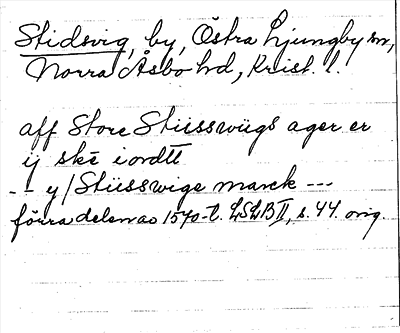 Stidsvig, by, Östra Ljungby sn,
Norra Åsbo hd, Krist. l.
aff Store Stüsswiigs ager er
ij skē iordtt
-- y/ Stüsswige marck ---
förra delen av 1570-t. LSLB II, s. 44. orig.